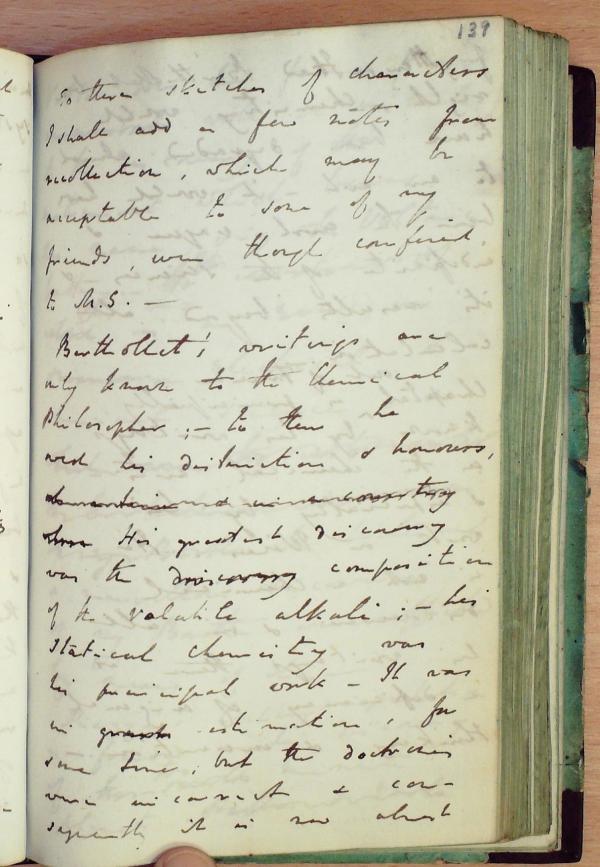 139
To these sketches of characters
I shall add a few notes from
recollection, which may be
acceptable to some of my
friends, even though confined
to M.S. —
Berthollet's writings are
only known to the Chemical
Philosopher; — to them he
owed his distinction & honours,
His greatest discovery
was the discovery composition
of the volatile alkali; — his
Statical chemistry was
his principal work — It was
in great estimation, for
some time, but the doctrines
were incorrect & con-
sequently it is now almost